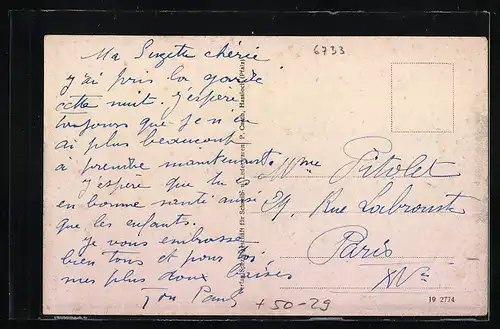 Ma Suzette chérie
j'ai pris la garde
cette nuit. j'espère
toujours que je n'en
ai plus beaucoup
à prendre maintenant.
j'espère que tu es
en bonne santé ainsi
que les enfants.
je vous embrasse
bien tous et pour toi
mes plus doux baisers
Ton Paul
6733
Mme Pitolet
29, Rue Labrouste
Paris
XVe
+50-29
19 2774